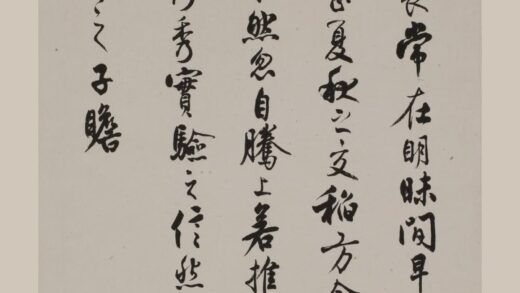 常在明昧間早
夏秋之交稻方
然忽自騰上若推
秀實驗之信然
之子瞻